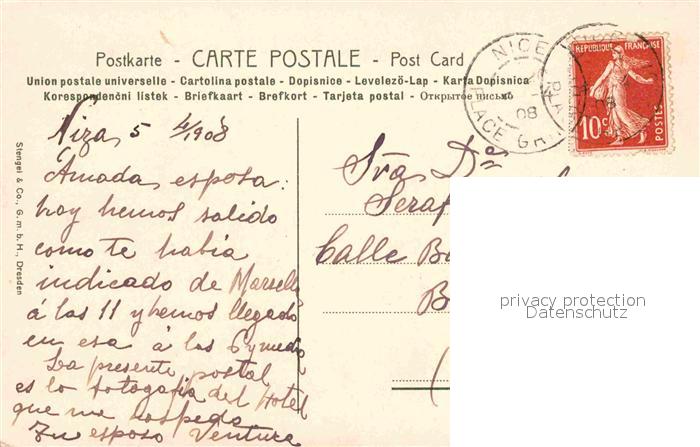 Postkarte - CARTE POSTALE - Post Card
Union postale universelle - Cartolina postale - Dopisnice - Levelező-Lap - Karta Dopisnica
Korespondenční listek - Briefkaart - Brefkort - Tarjeta postal - Открытое письмо
NICE
PLACE GR
08
REPUBLIQUE FRANÇAISE
10 c
POSTES
Stengel & Co., G. m. b. H., Dresden
Niza 5 4/1908
Amada esposa:
hoy hemos salido
como te habia
indicado de Marsella
á las 11 y hemos llegado
en esa á las 6 y media
La presente postal
es la fotografia del Hotel
que me hospedo
Tu esposo Ventura
Sra Dª
Seraf
Calle Ba
B
privacy protection
Datenschutz